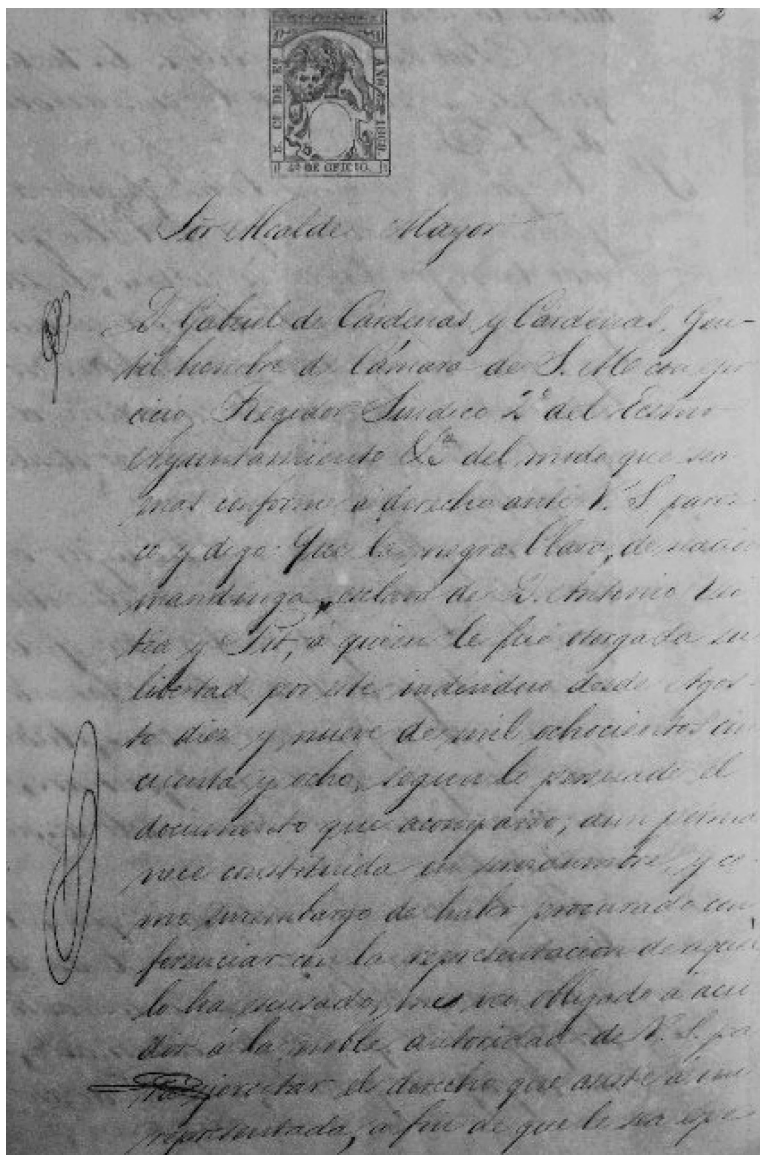 2
AÑO DE 1868.
4º DE OFICIO.
Sõr Alcalde Mayor
D. Gabriel de Cárdenas y Cárdenas, Gen-
til hombre de Cámara de S. M. con ejer
cicio, Regidor Sindico 2º del Ecsmo
Ayuntamiento &ª del modo que sea
mas conforme a derecho ante V. S parez
co y digo: Que la negra Clara, de nacion
mandinga, esclava de D. Antonio
y á quien le fué otorgada su
libertad por este individuo desde Agos-
to diez y nueve de mil ochocientos cin
cuenta y ocho, segun lo persuade el
documento que acompaño, aun perma
nece constituida en servidumbre, y co-
mo sin embargo de haber procurado con
ferenciar con la representacion de aquel
lo ha escusado, me veo obligado a acu
dir á la noble autoridad de V. S. pa
ra ejercitar el derecho que asiste á mi
representada, a fin de que le sea